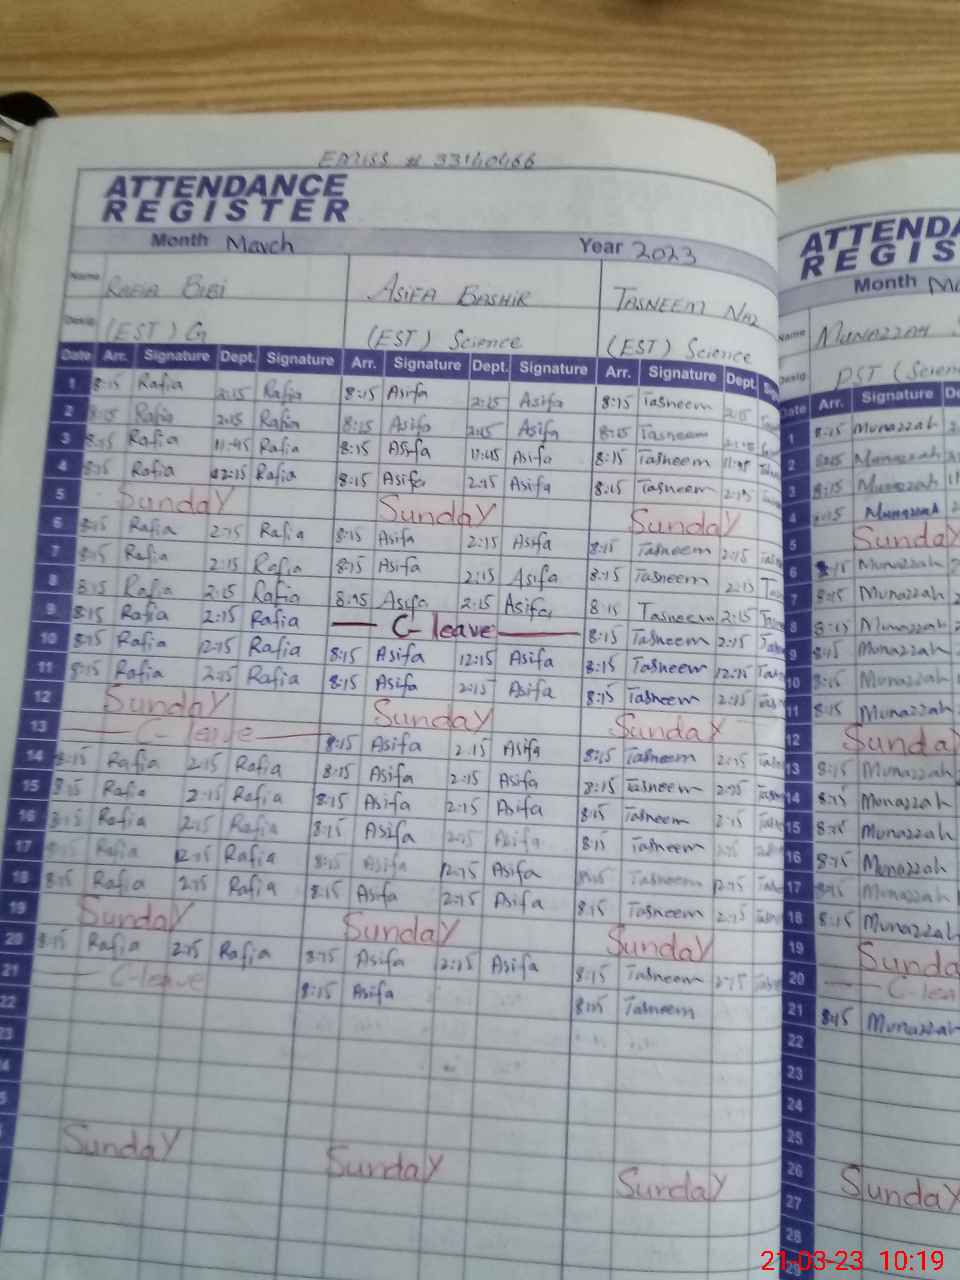 EMISS # 33140466
ATTENDANCE
REGISTER
Month March Year 2023
Name RAFIA BIBI ASIFA BASHIR TASNEEM NAZ
Desig. (EST) G (EST) Science (EST) Science
Date Arr. Signature Dept. Signature Arr. Signature Dept. Signature Arr. Signature Dept.
1 8:15 Rafia 2:15 Rafia 8:15 Asifa 2:15 Asifa 8:15 Tasneem 2:15
2 8:15 Rafia 2:15 Rafia 8:15 Asifa 2:15 Asifa 8:15 Tasneem
3 8:15 Rafia 11:45 Rafia 8:15 Asifa 11:45 Asifa 8:15 Tasneem 11:45
4 8:15 Rafia 12:15 Rafia 8:15 Asifa 2:15 Asifa 8:15 Tasneem 2:15
5 Sunday Sunday Sunday
6 8:15 Rafia 2:15 Rafia 8:15 Asifa 2:15 Asifa 8:15 Tasneem 2:15
7 8:15 Rafia 2:15 Rafia 8:15 Asifa 2:15 Asifa 8:15 Tasneem 2:15
8 8:15 Rafia 2:15 Rafia 8:15 Asifa 2:15 Asifa 8:15 Tasneem 2:15
9 8:15 Rafia 2:15 Rafia C-leave 8:15 Tasneem 2:15
10 8:15 Rafia 12:15 Rafia 8:15 Asifa 12:15 Asifa 8:15 Tasneem 12:15
11 8:15 Rafia 2:15 Rafia 8:15 Asifa 2:15 Asifa 8:15 Tasneem 2:15
12 Sunday Sunday Sunday
13 C-leave 8:15 Asifa 2:15 Asifa 8:15 Tasneem 2:15
14 8:15 Rafia 2:15 Rafia 8:15 Asifa 2:15 Asifa 8:15 Tasneem 2:15
15 8:15 Rafia 2:15 Rafia 8:15 Asifa 2:15 Asifa 8:15 Tasneem 2:15
16 8:15 Rafia 2:15 Rafia 8:15 Asifa 2:15 Asifa 8:15 Tasneem 2:15
17 8:15 Rafia 12:15 Rafia 8:15 Asifa 12:15 Asifa 8:15 Tasneem 12:15
18 8:15 Rafia 2:15 Rafia 8:15 Asifa 2:15 Asifa 8:15 Tasneem 2:15
19 Sunday Sunday Sunday
20 8:15 Rafia 2:15 Rafia 8:15 Asifa 2:15 Asifa 8:15 Tasneem 2:15
21 C-leave 8:15 Asifa 8:15 Tasneem
22
23
Sunday Sunday Sunday
ATTENDA
REGIS
Month
Name MUNAZZAH
Desig. PST (Scien
Date Arr. Signature
1 8:15 Munazzah
2 8:15 Munazzah
3 8:15 Munazzah
4 8:15 Munazzah
5 Sunday
6 8:15 Munazzah
7 8:15 Munazzah
8 8:15 Munazzah
9 8:15 Munazzah
10 8:15 Munazzah
11 8:15 Munazzah
12 Sunday
13 8:15 Munazzah
14 8:15 Munazzah
15 8:15 Munazzah
16 8:15 Munazzah
17 8:15 Munazzah
18 8:15 Munazzah
19 Sunda
20 C-lea
21 8:15 Munazzah
22
23
24
25
26 Sunday
27
28
21-03-23 10:19